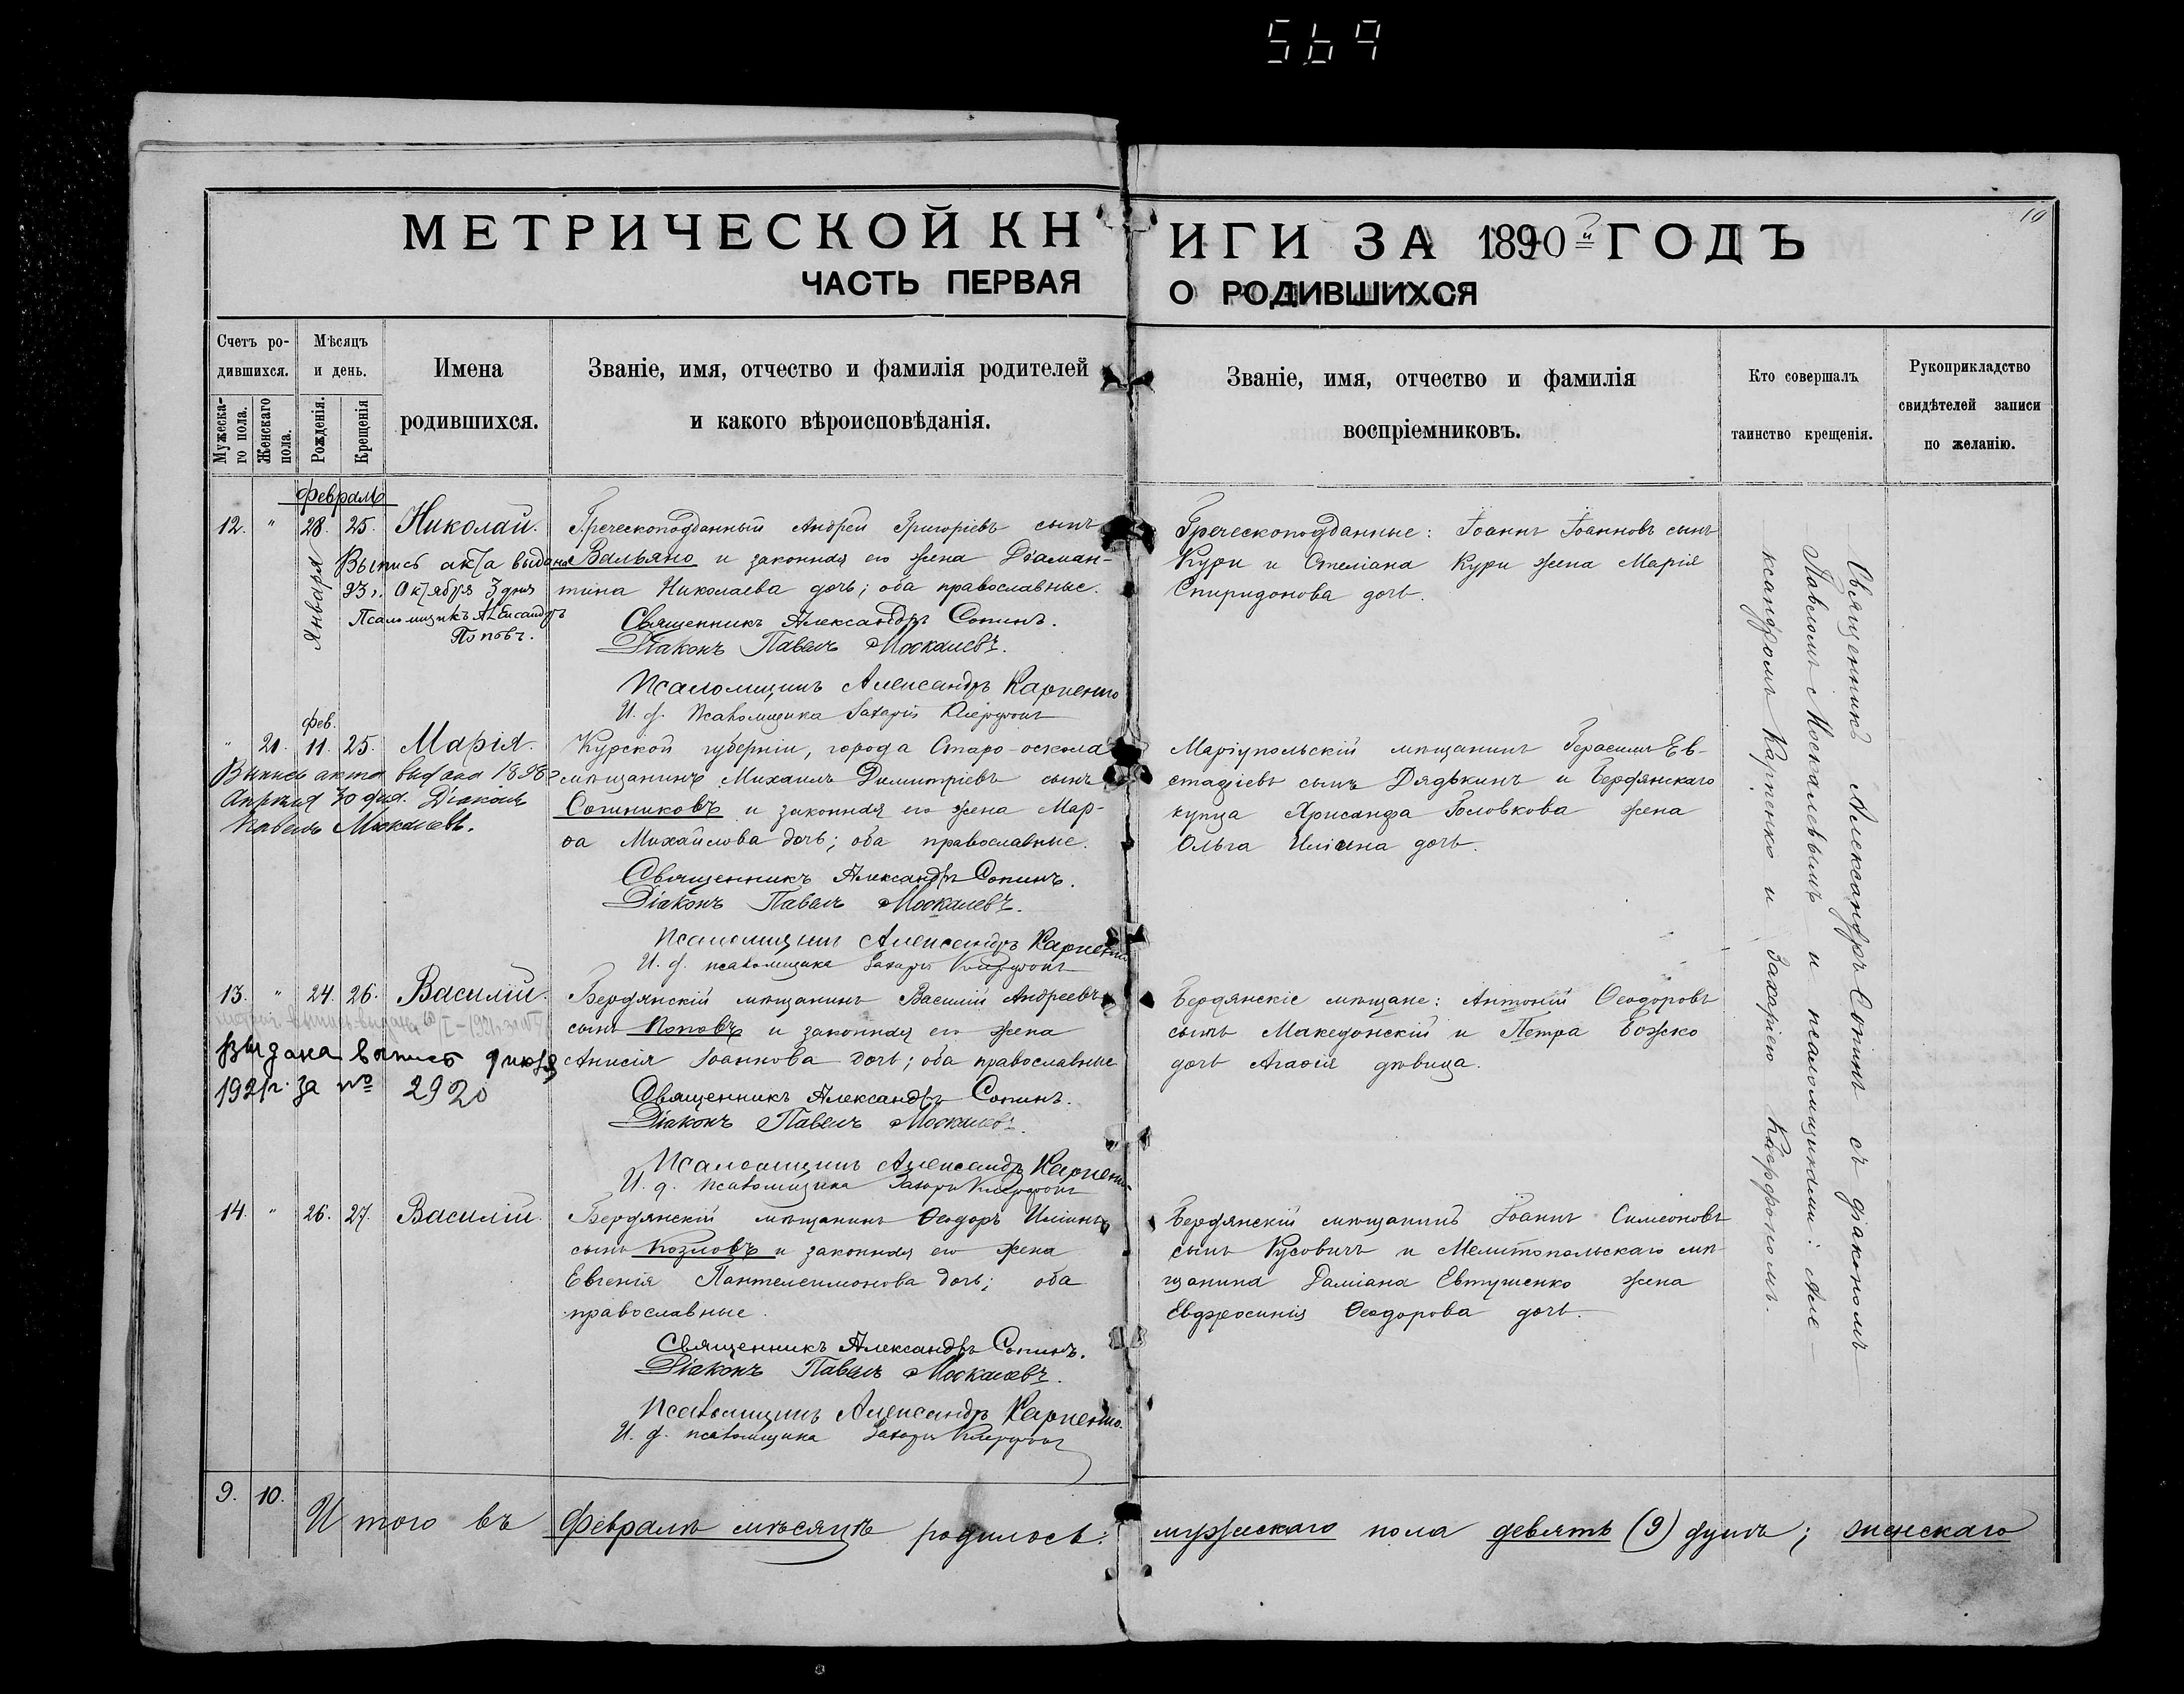 569
10
МЕТРИЧЕСКОЙ КНИГИ ЗА 1890й ГОДЪ
ЧАСТЬ ПЕРВАЯ О РОДИВШИХСЯ
Счетъ ро-
дившихся.
Мужеска-
го пола.
Женскаго
пола.
Мѣсяцъ
и день.
Рожденія.
Крещенія
Имена
родившихся.
Званіе, имя, отчество и фамилія родителей
и какого вѣроисповѣданія.
Званіе, имя, отчество и фамилія
воспріемниковъ.
Кто совершалъ
таинство крещенія.
Рукоприкладство
свидѣтелей записи
по желанію.
Февраль
12. " 28. 25. Николай.
Января
Выпись акта выдана
93 г. Октября 3 дня
Псаломщикъ Александръ
Поповъ.
Греческоподданный Андрей Григоріевъ сынъ
Вальяно и законная его жена Діаман-
тина Николаева дочь; оба православные.
Священникъ Александръ Сопинъ.
Діаконъ Павелъ Москалевъ.
Псаломщикъ Александръ Карпенко
И. д. псаломщика Захарій
Греческоподданные: Іоаннъ Іоанновъ сынъ
Кури и Стеліана Кури жена Марія
Спиридонова дочь.
Фев.
" 21. 11. 25. Марія.
Выпись акта выдана 1898 г
Апрѣля 30 дня. Діаконъ
Павелъ Москалевъ.
Курской губерніи, города Старо-оскола
мѣщанинъ Михаилъ Димитріевъ сынъ
Сотниковъ и законная его жена Мар-
ѳа Михайлова дочь; оба православные.
Священникъ Александръ Сопинъ.
Діаконъ Павелъ Москалевъ.
Псаломщикъ Александръ Карпенко
И. д. псаломщика Захарій
Маріупольскій мѣщанинъ Герасимъ Ев-
стаѳіевъ сынъ Дядькинъ и Бердянскаго
купца Хрисанфа Головкова жена
Ольга Иліина дочь.
13. " 24. 26. Василій.
Выдана выпись 9 июля
1921 г. за № 2920
Бердянскій мѣщанинъ Василій Андреевъ
сынъ Поповъ и законная его жена
Анисія Іоаннова дочь; оба православные
Священникъ Александръ Сопинъ.
Діаконъ Павелъ Москалевъ.
Псаломщикъ Александръ Карпенко
И. д. псаломщика Захарій
Бердянскіе мѣщане: Антоній Ѳеодоровъ
сынъ Македонскій и Петра Божко
дочь Агаѳія дѣвица.
14. " 26. 27. Василій.
Бердянскій мѣщанинъ Ѳеодоръ Иліинъ
сынъ Козловъ и законная его жена
Евгенія Пантелеимонова дочь; оба
православные.
Священникъ Александръ Сопинъ.
Діаконъ Павелъ Москалевъ.
Псаломщикъ Александръ Карпенко.
И. д. псаломщика Захарій
Бердянскій мѣщанинъ Іоаннъ Симеоновъ
сынъ Кусовичъ и Мелитопольскаго мѣ-
щанина Даміана Евтушенко жена
Евфросинія Ѳеодорова дочь.
Священникъ Александръ Сопинъ съ діакономъ
Павломъ Москалевымъ и псаломщиками: Але-
ксандромъ Карпенко и Захаріею
9. 10.
Итого въ Февралѣ мѣсяцѣ родилось: мужескаго пола девять (9) душъ; женскаго